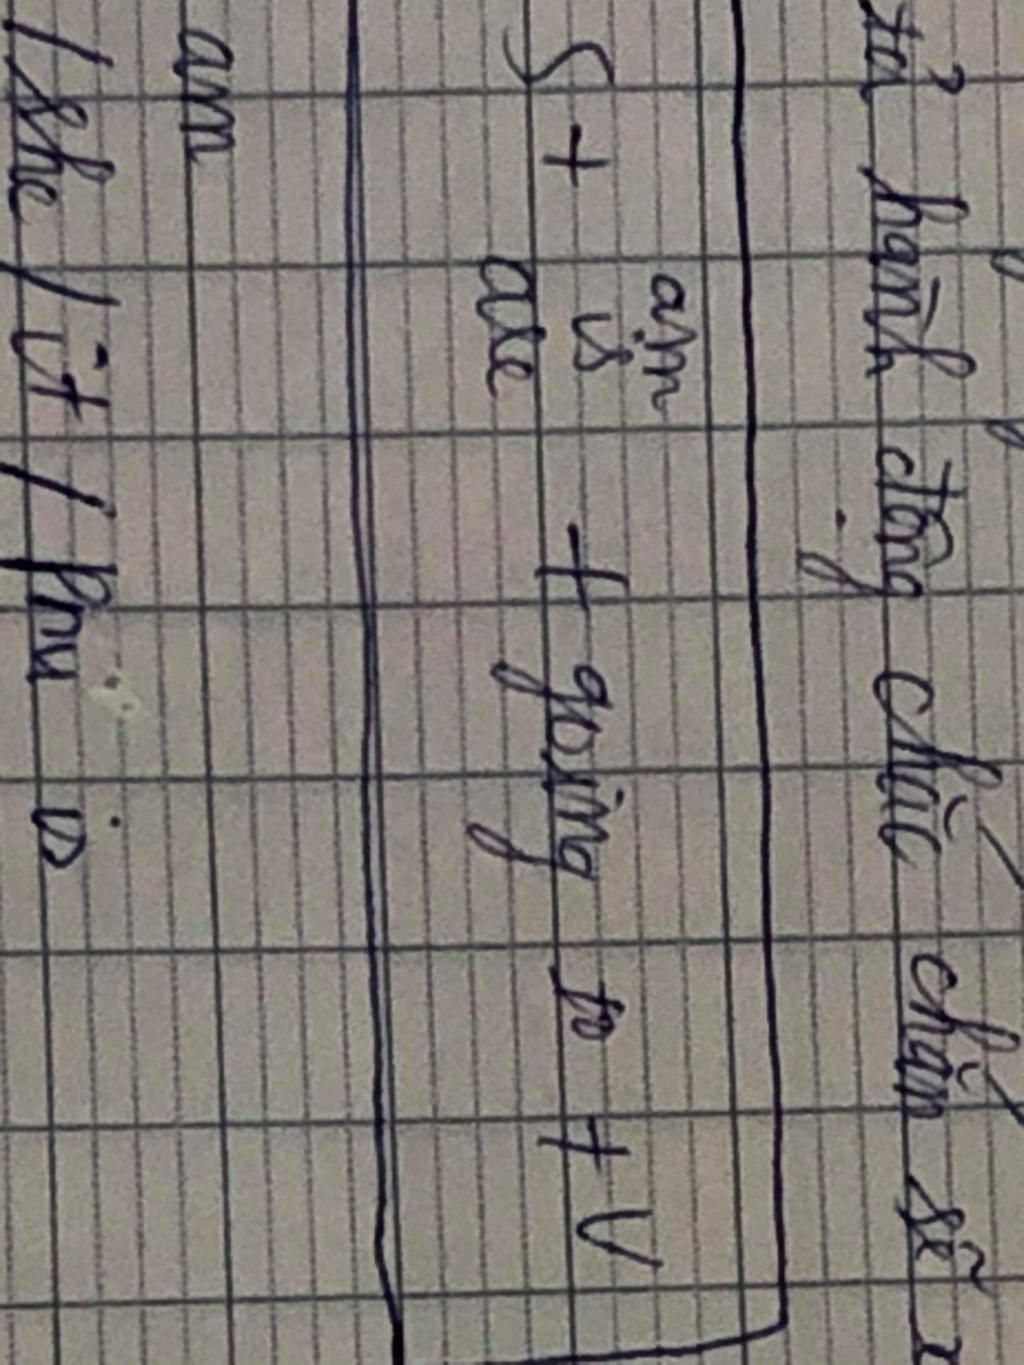 tả hành động chắc chắn sẽ
am
S + is + going to + V
are
am
/she /it /